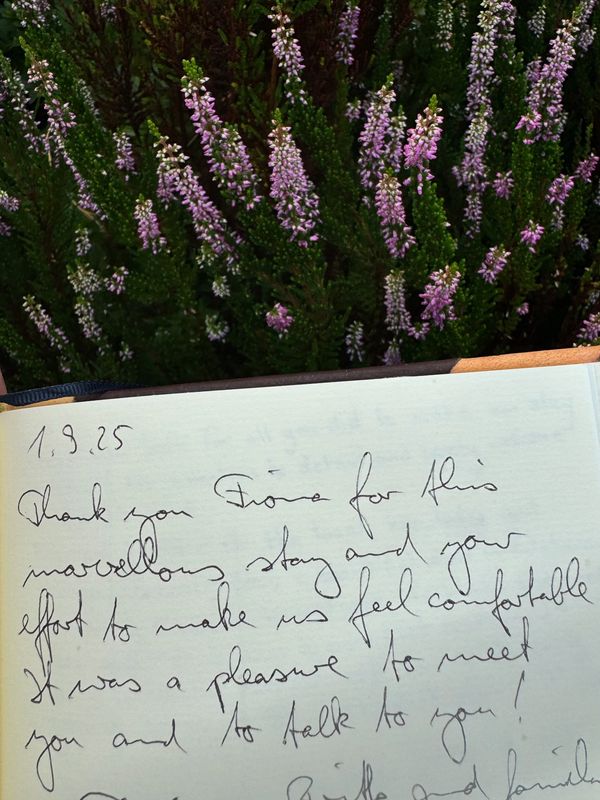 1.9.25
Thank you Fiona for this
marvellous stay and your
effort to make us feel comfortable
It was a pleasure to meet
you and to talk to you!
and family